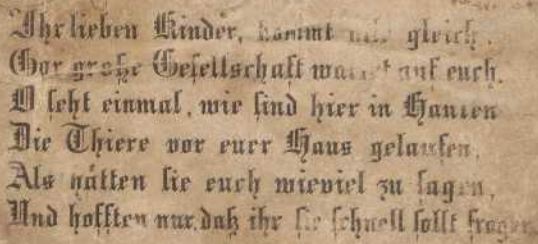 Ihr lieben Kinder, kommt nur gleich,
Gar große Gesellschaft wartet auf euch.
O seht einmal, wie sind hier in Haufen
Die Thiere vor euer Haus gelaufen,
Als hätten sie euch wieviel zu sagen,
Und hofften nur, daß ihr sie schnell sollt fragen